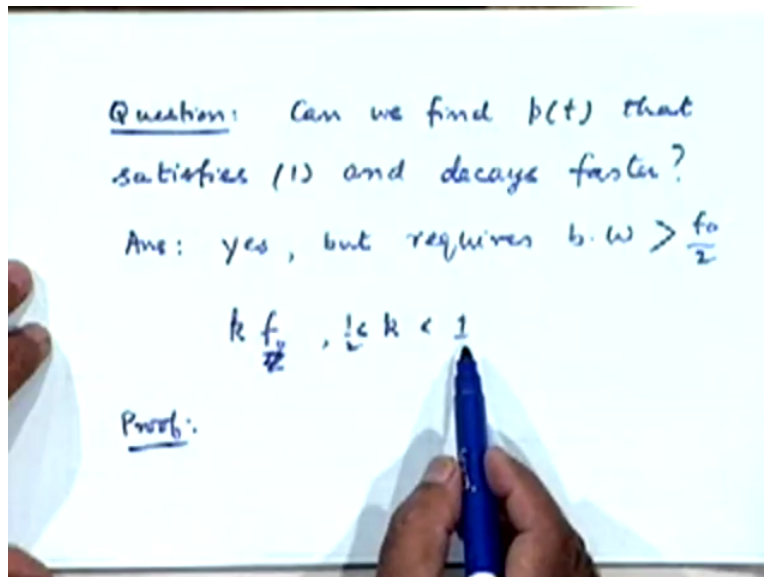 Question: Can we find p(t) that
satisfies (1) and decays faster?
Ans: yes, but requires b.w > f₀/2
k f₀, 1/2 < k < 1
Proof: